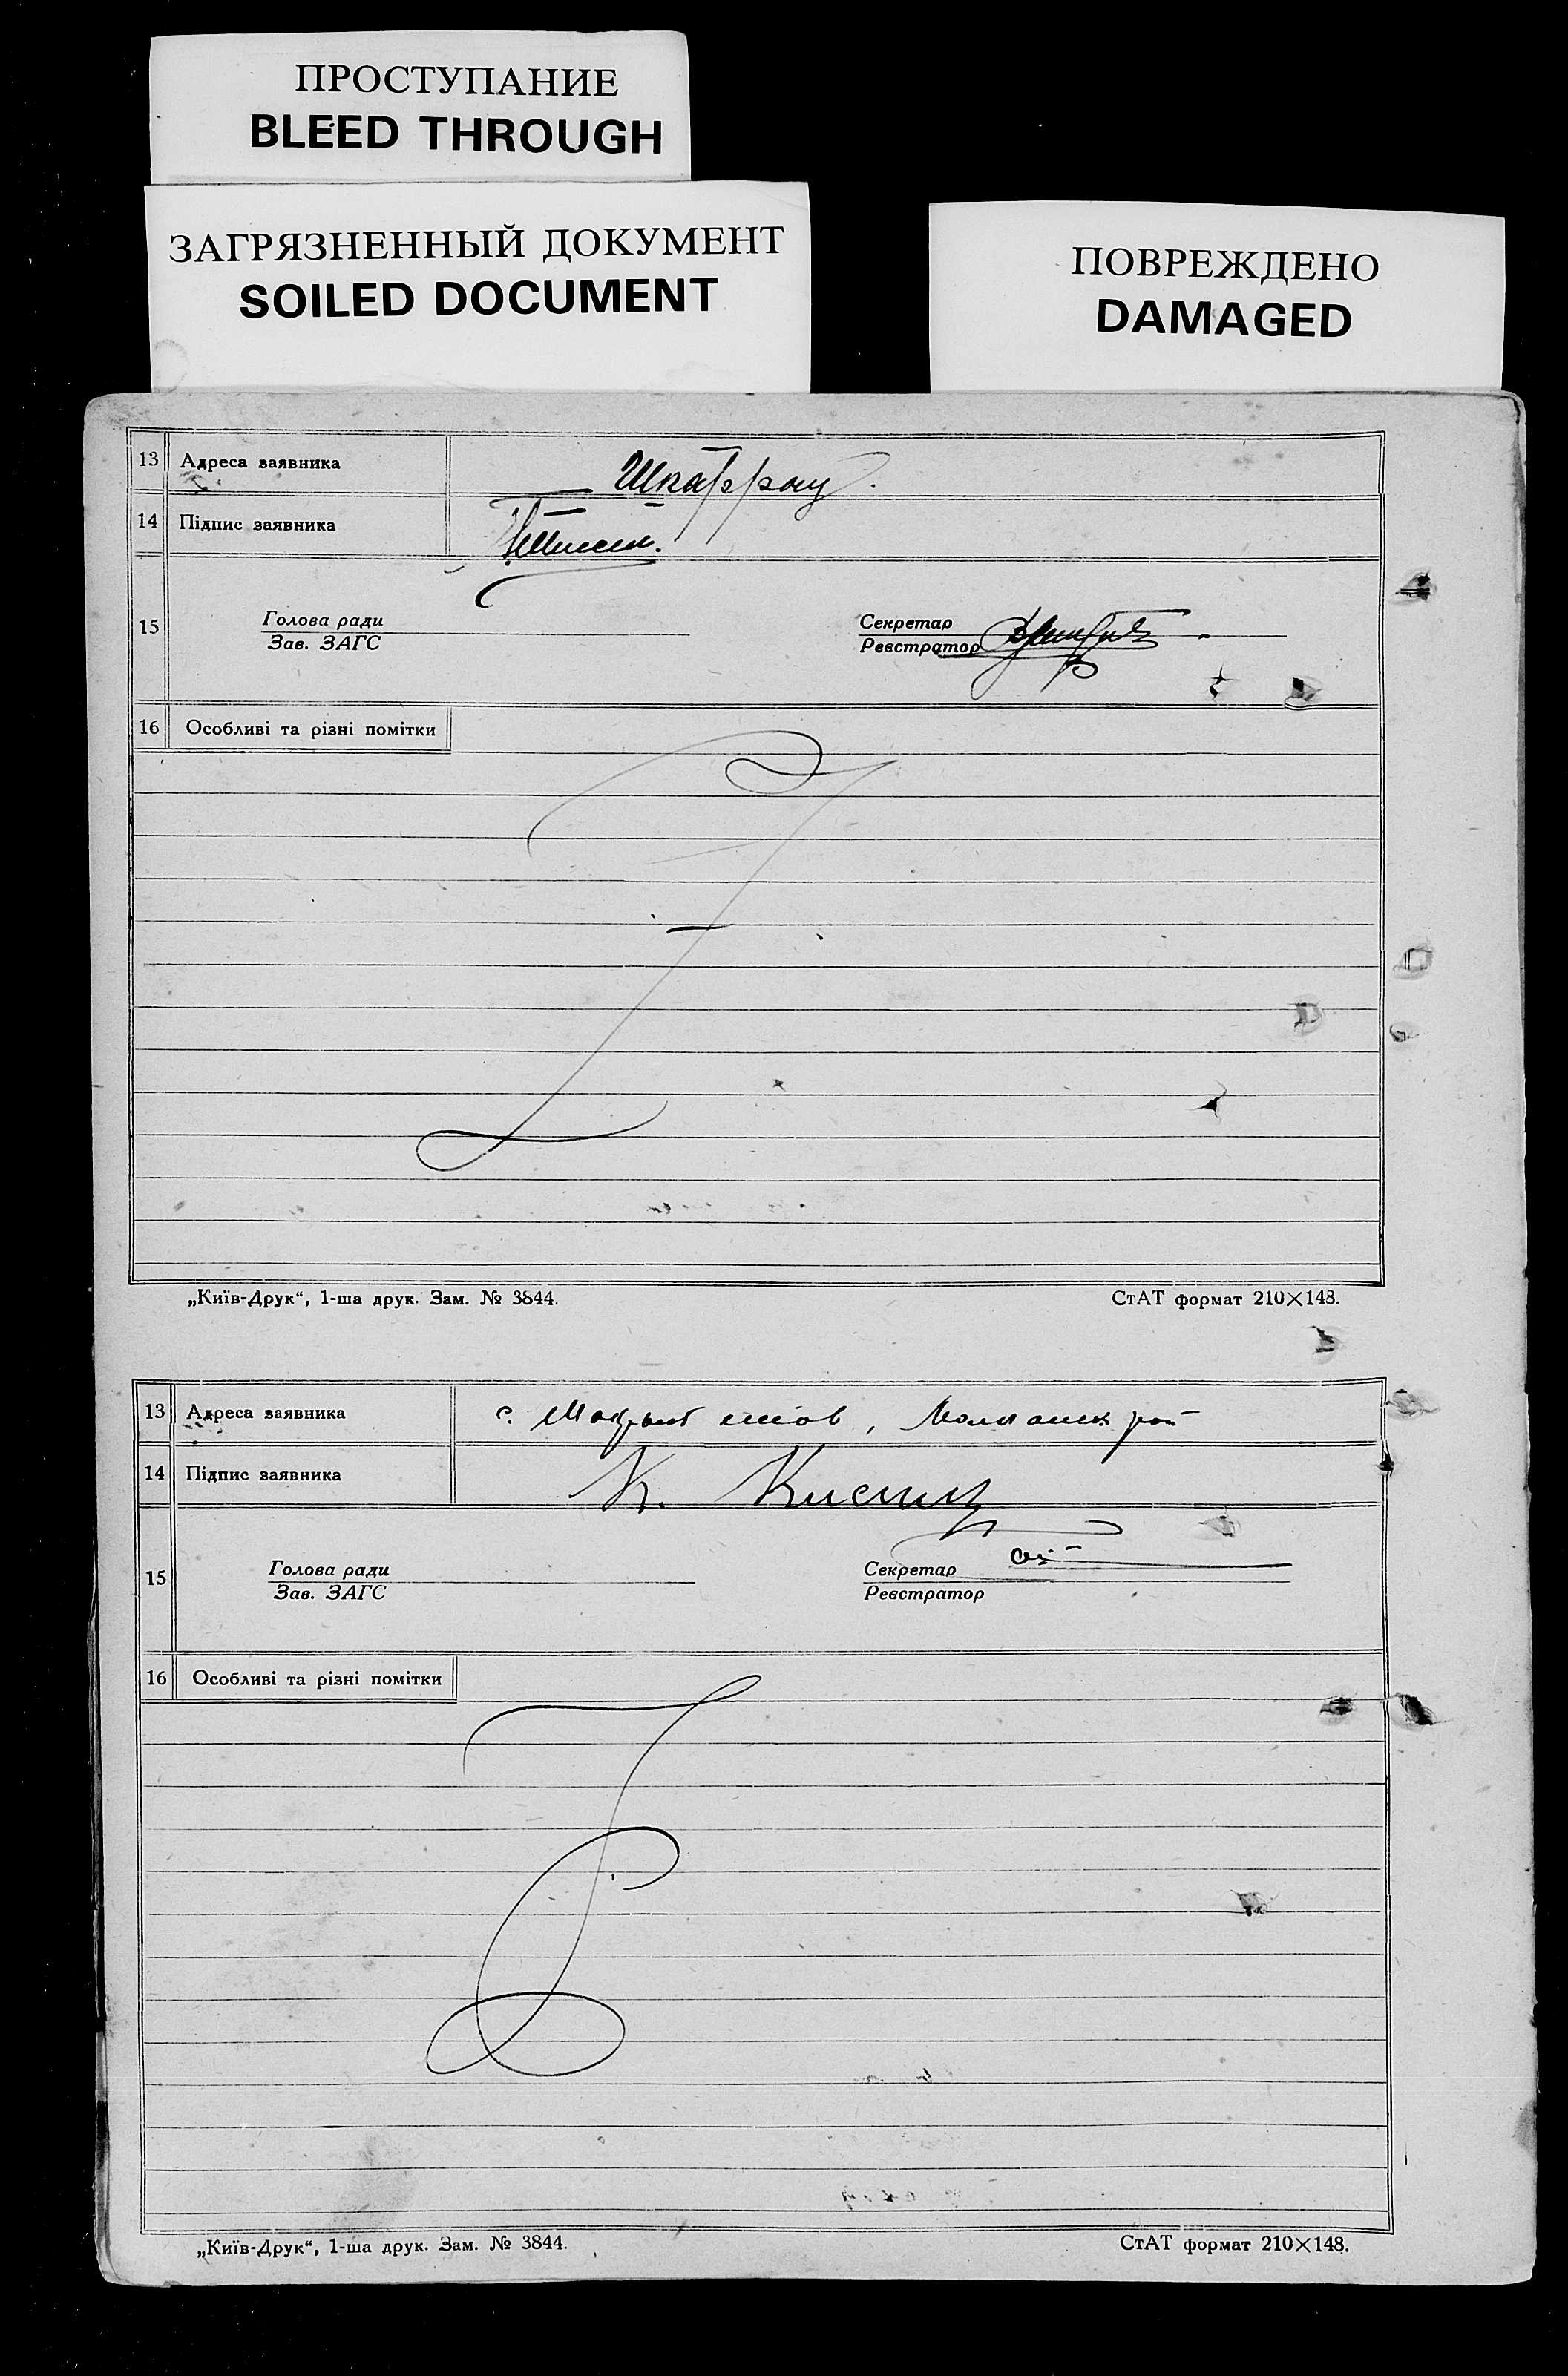 ПРОСТУПАНИЕ
BLEED THROUGH
ЗАГРЯЗНЕННЫЙ ДОКУМЕНТ
SOILED DOCUMENT
ПОВРЕЖДЕНО
DAMAGED
13 Адреса заявника
14 Підпис заявника
15 Голова ради Секретар
Зав. ЗАГС Реєстратор
16 Особливі та різні помітки
„Київ-Друк“, 1-ша друк. Зам. № 3844. СтАТ формат 210×148.
13 Адреса заявника с.
14 Підпис заявника К.
15 Голова ради Секретар
Зав. ЗАГС Реєстратор
16 Особливі та різні помітки
„Київ-Друк“, 1-ша друк. Зам. № 3844. СтАТ формат 210×148.